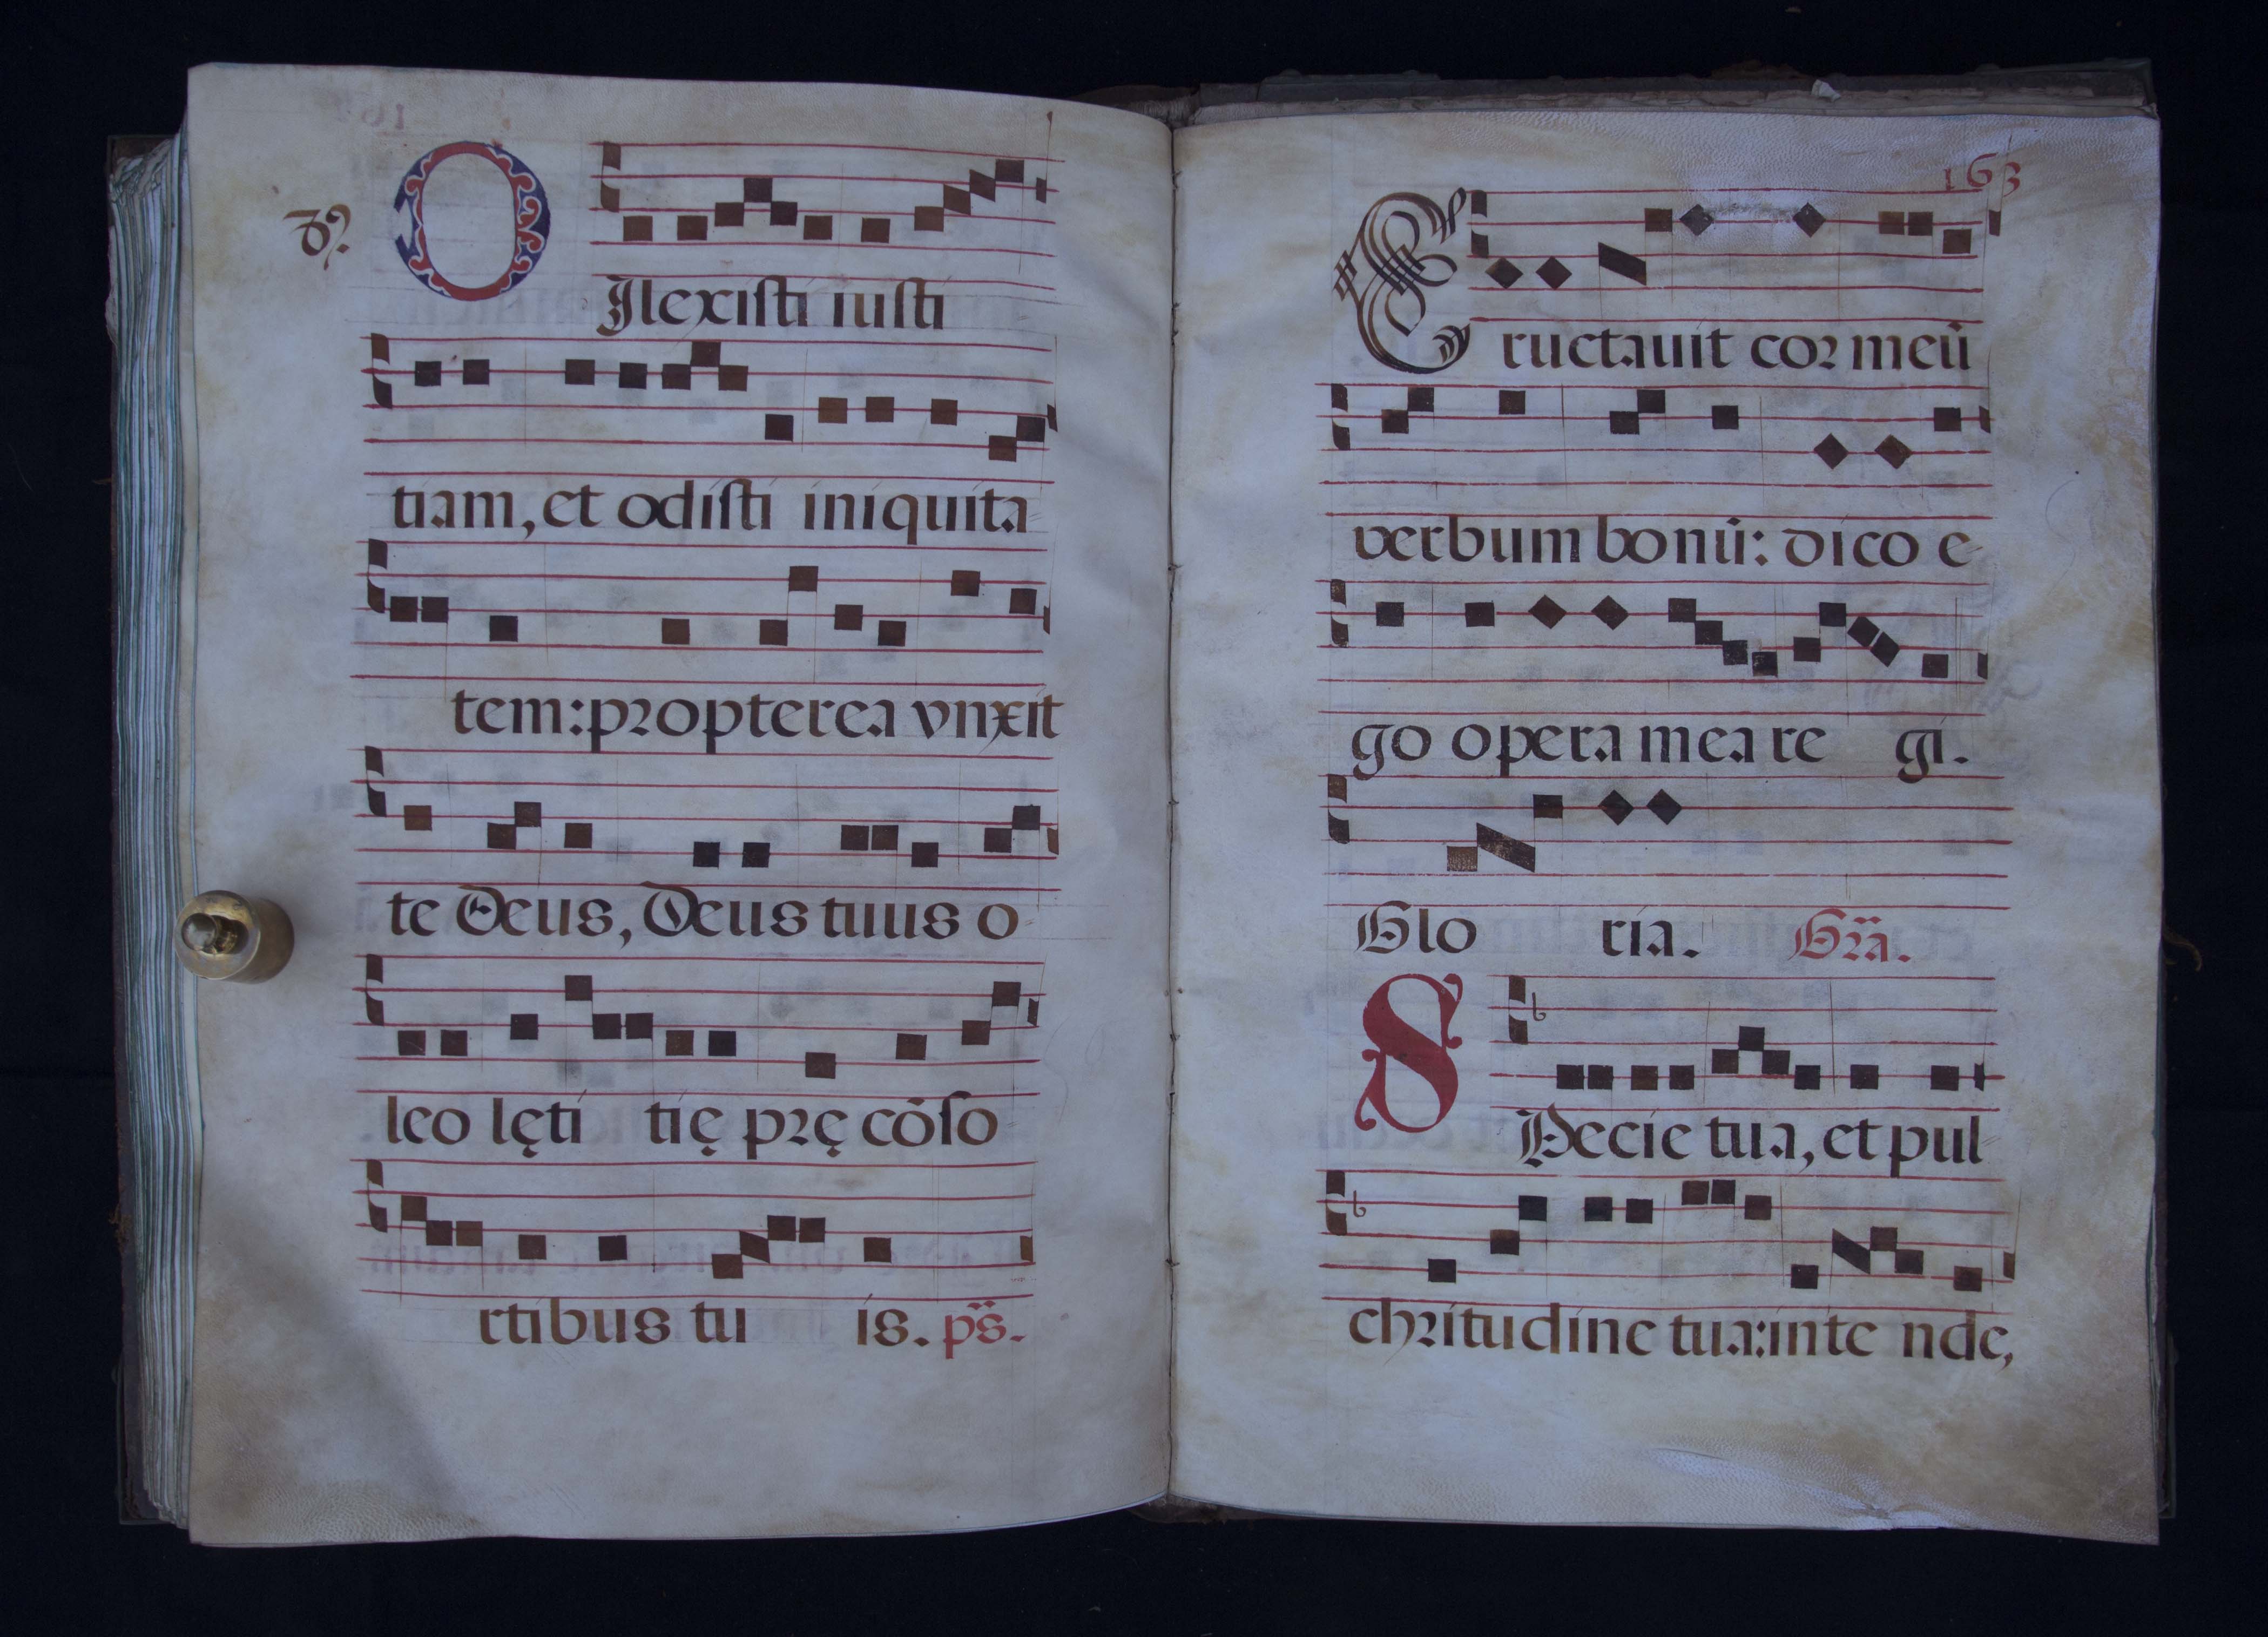 D
Ilexisti iusti
tiam, et odisti iniquita
tem: propterea vnxit
te Deus, Deus tuus o
leo lęti tię prę cōso
rtibus tu is. ps̈.
163
E ructauit cor meū
verbum bonū: dico e
go opera mea re gi.
Glo ria. Gr̈a.
S
Pecie tua, et pul
chritudine tua: inte nde,